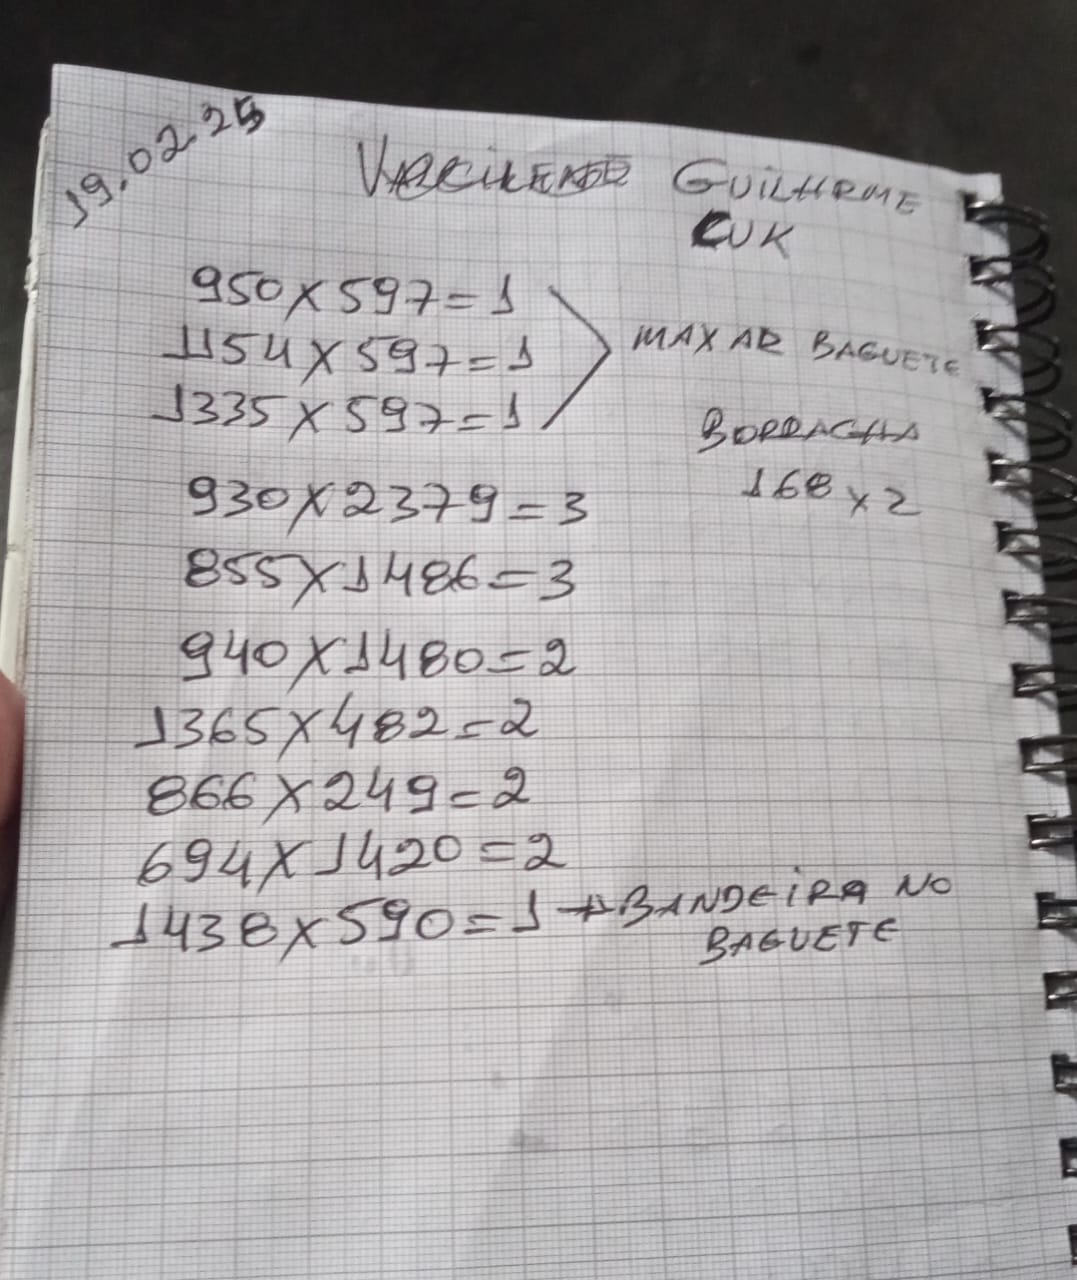 19.02.25
GUILHRME
CUK
950X597=1
1154X597=1
1335X597=1
MAXAR BAGUETE
BORRACHA
168x2
930X2379=3
855X1486=3
940X1480=2
1365X482=2
866X249=2
694X1420=2
1438x590=1 → BANDEiRA NO
BAGUETE